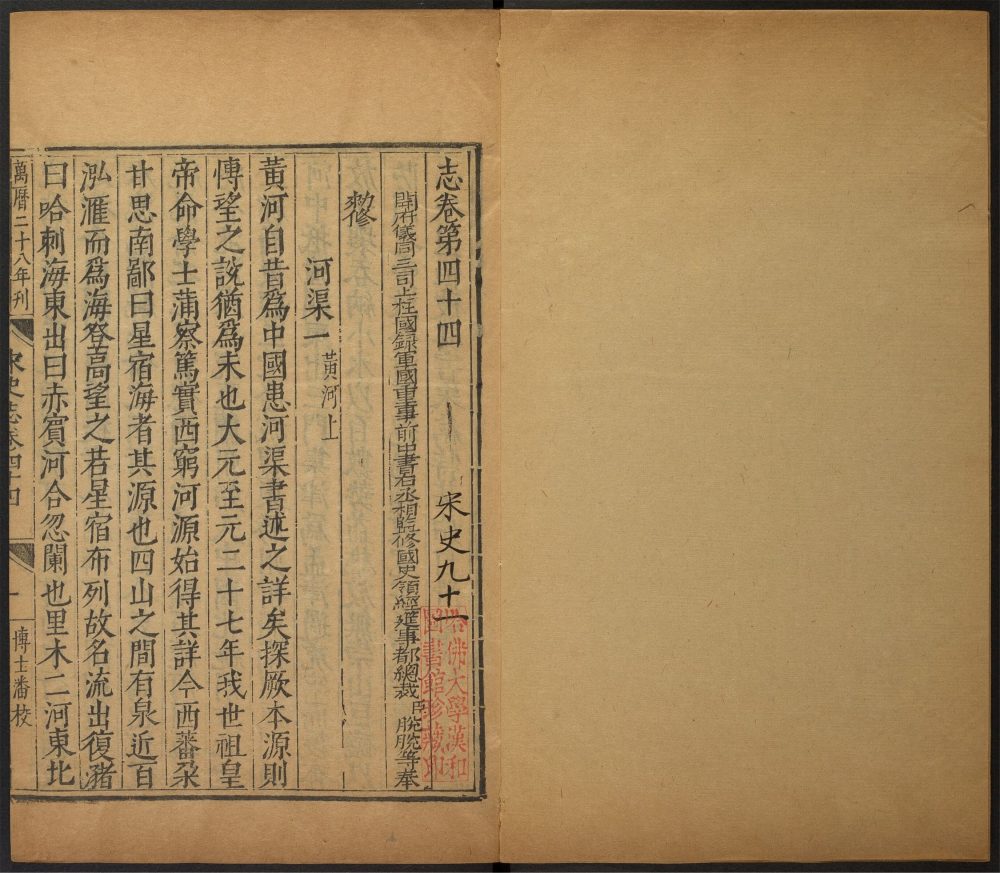 志卷第四十四　宋史九十一
開府儀同三司上柱國錄軍國重事前中書右丞相監修國史領經筵事都總裁臣脫脫等奉
勑修
河渠一 黃河上
黃河自昔爲中國患河渠書述之詳矣探厥本源則
傳望之說猶爲未也大元至元二十七年我世祖皇
帝命學士蒲察篤實西窮河源始得其詳今西蕃朶
甘思南鄙曰星宿海者其源也四山之間有泉近百
泓滙而爲海登高望之若星宿布列故名流出復瀦
曰哈剌海東出曰赤賔河合忽闌也里木二河東北
萬曆二十八年刊
宋史志卷四十四
一
博士番校
哈佛大學漢和
圖書館珍藏印